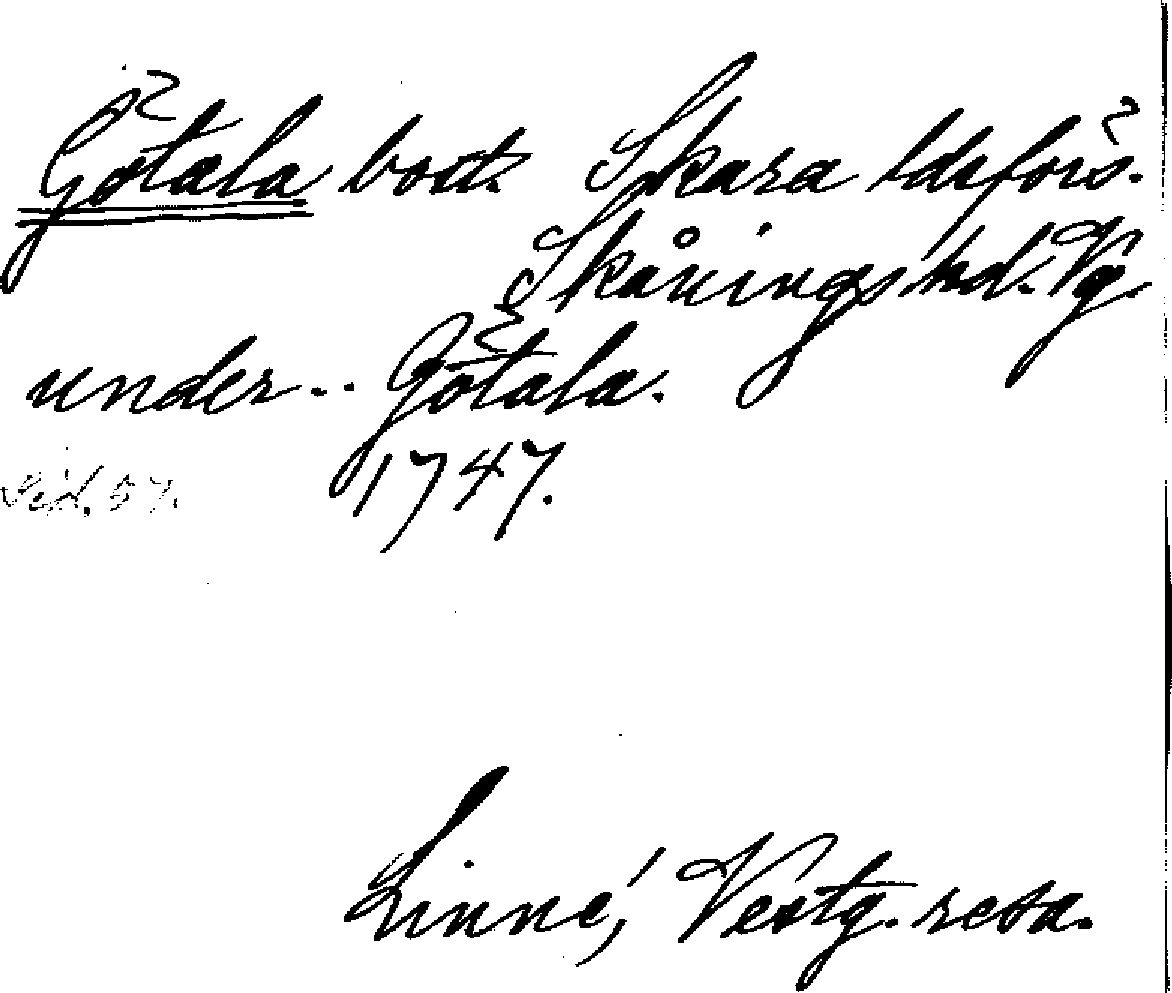 Götala bost. Skara ldsförs.
Skånings hd. Vg.
under .. Götala.
1747.
Sid. 57.
Linné, Vestg. resa.